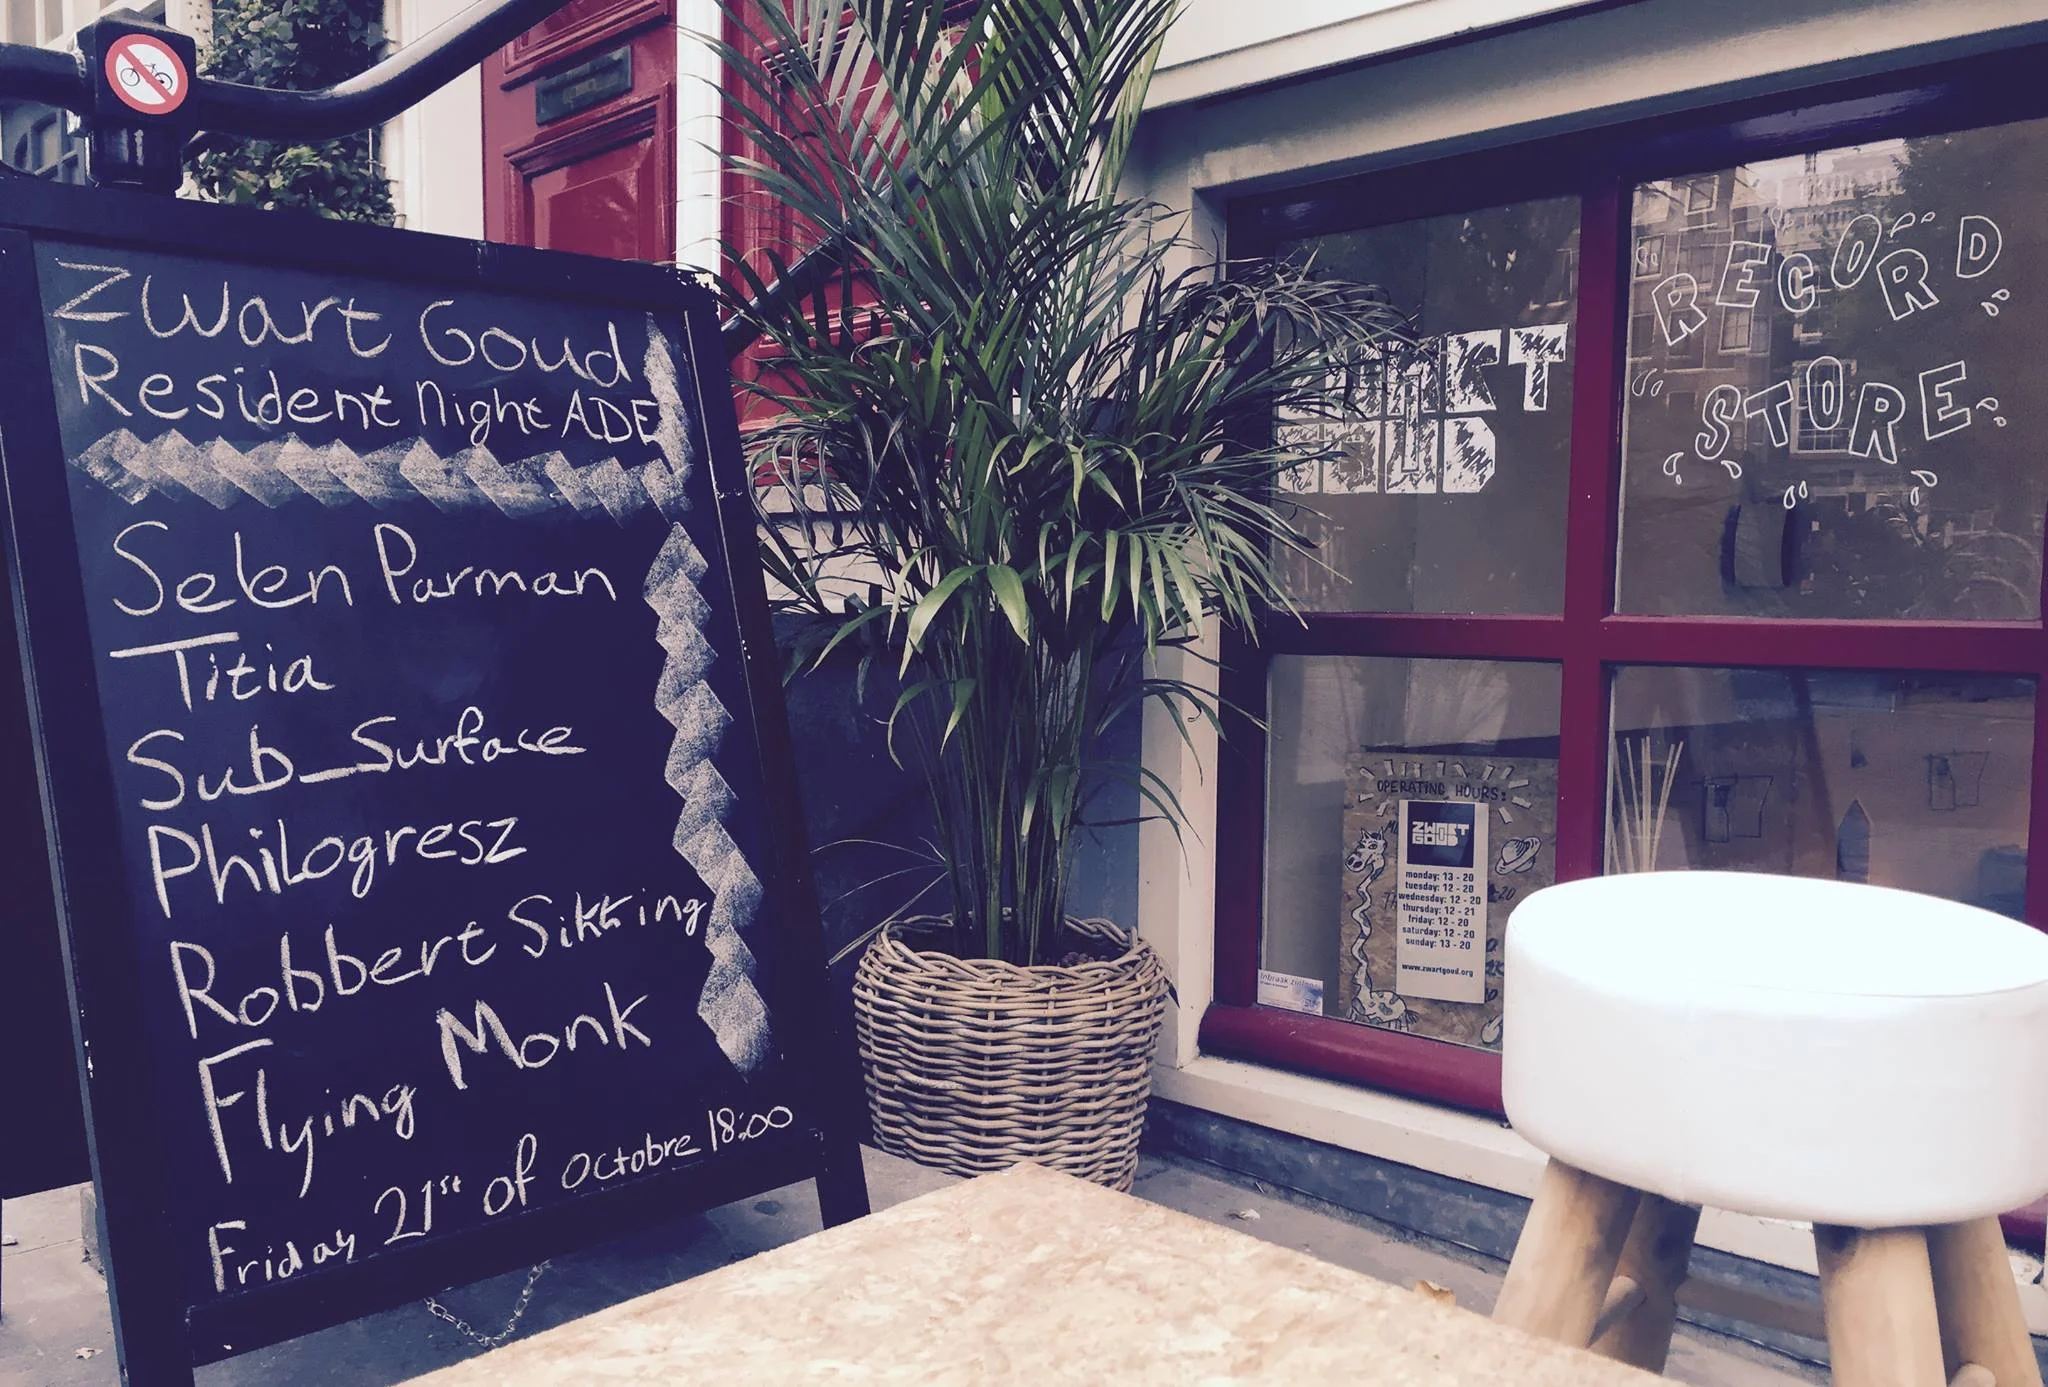 Zwart Goud
Resident Night ADE
Selen Parman
Titia
Sub_Surface
Philogresz
Robbert Sikking
Flying Monk
Friday 21st of octobre 18:00
GOUD
RECORD
STORE
OPERATING HOURS:
ZWART
GOUD
monday: 13 - 20
tuesday: 12 - 20
wednesday: 12 - 20
thursday: 12 - 21
friday: 12 - 20
saturday: 12 - 20
sunday: 13 - 20
www.zwartgoud.org